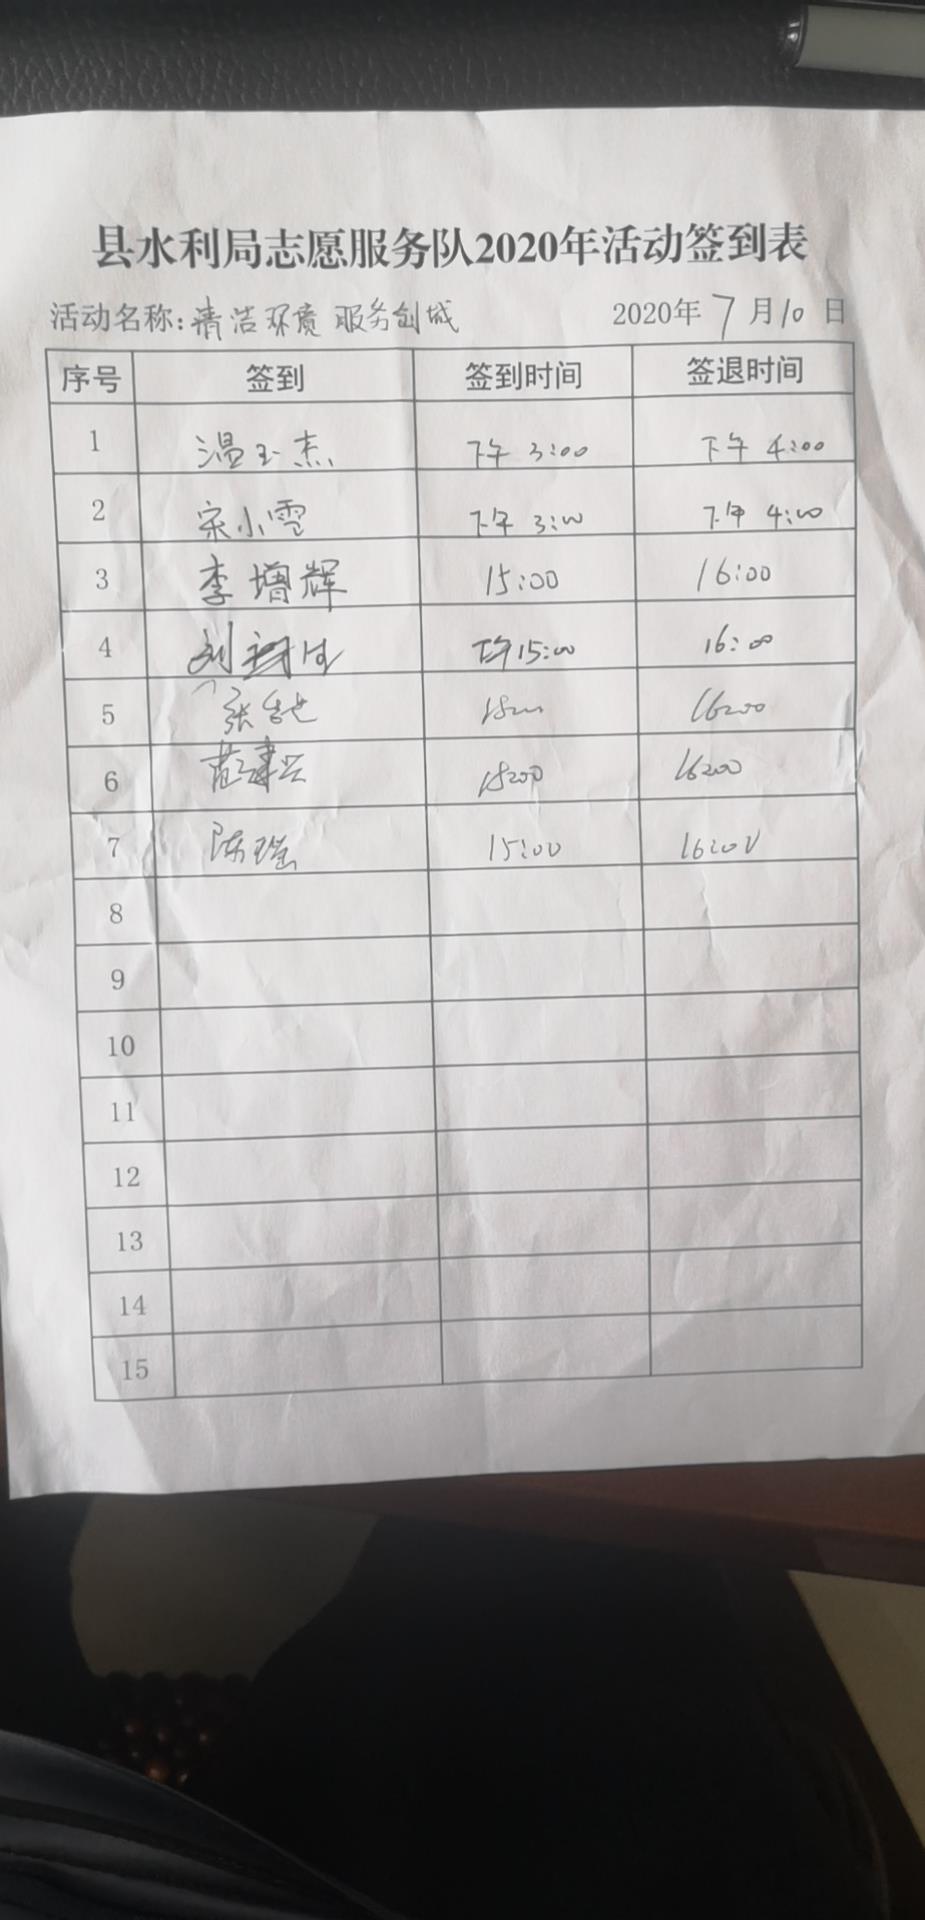 县水利局志愿服务队2020年活动签到表
活动名称:清洁环境 服务创城 2020年 7 月 10 日
序号 签到 签到时间 签退时间
1 温玉杰 下午 3:00 下午 4:00
2 宋小霞 下午 3:00 下午 4:00
3 李增辉 15:00 16:00
4 刘 下午15:00 16:00
5 张 16:00
6 建兴 16:00
7 陈瑶 15:00 16:00
8
9
10
11
12
13
14
15